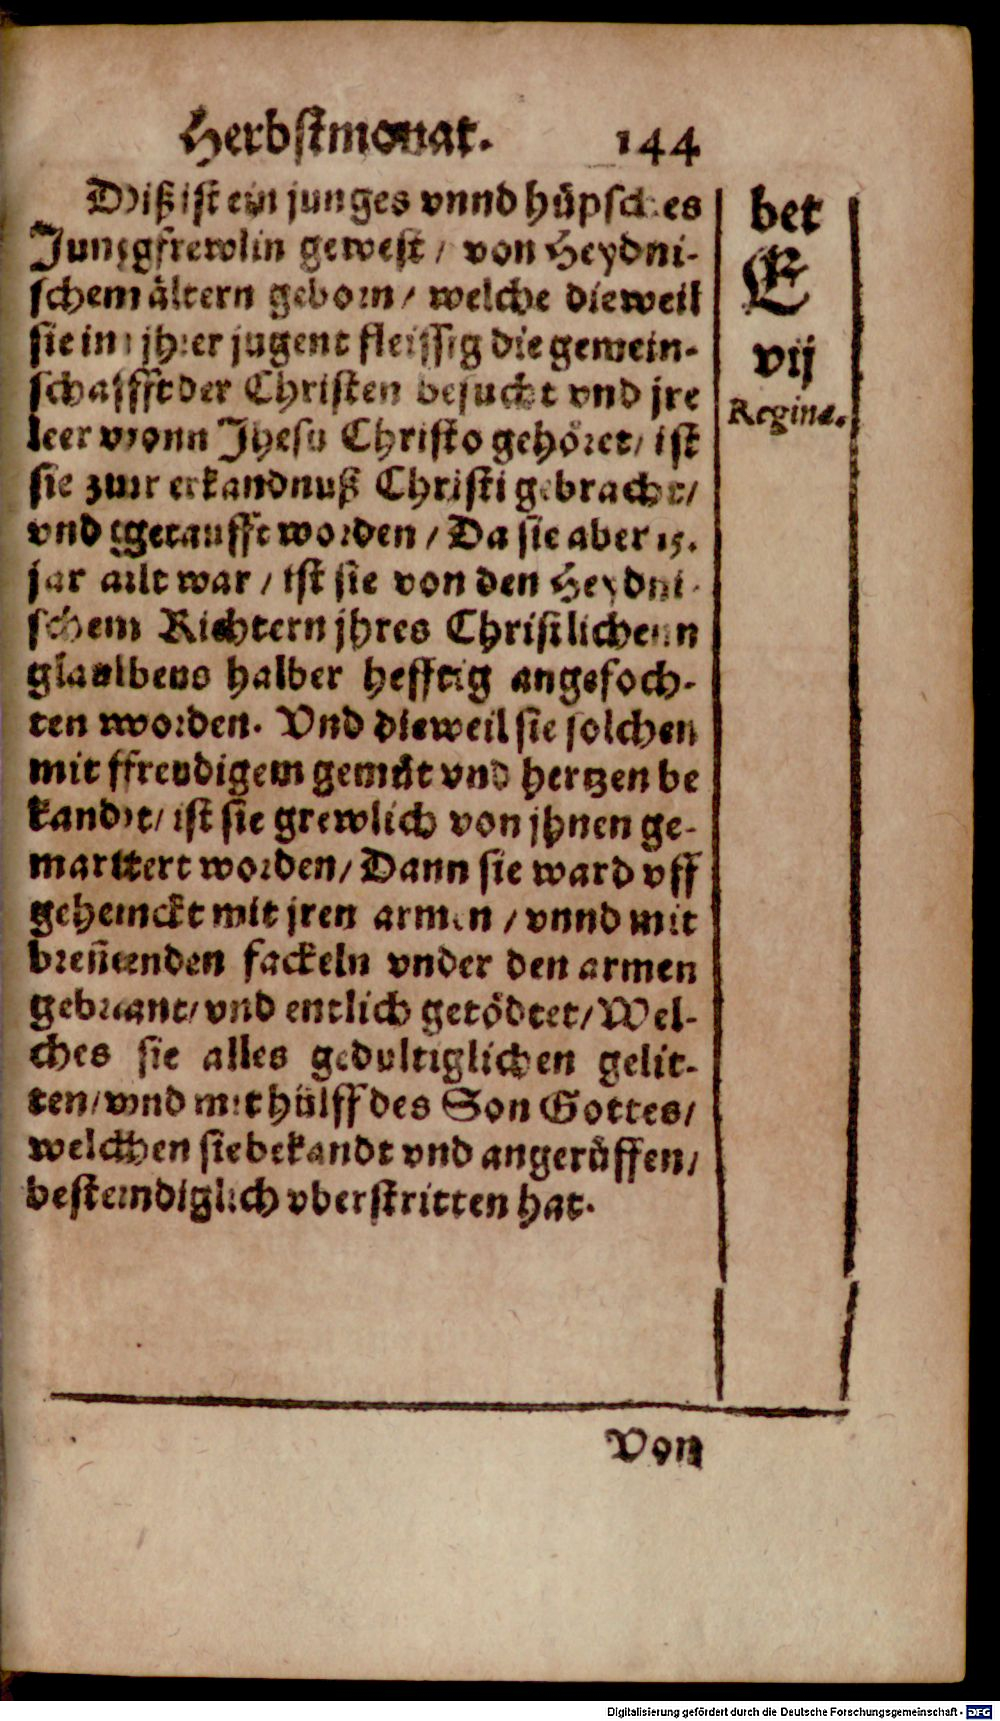 Herbstmonat. 144
Diß ist ein junges vnnd hüpsches
Jungfrewlin gewest / von Heydni-
schem ältern geborn / welche dieweil
sie in jhrer jugent fleissig die gemein-
schafft der Christen besucht vnd jre
leer vonn Jhesu Christo gehöret / ist
sie zur erkandnuß Christi gebracht /
vnd getaufft worden / Da sie aber 15.
jar alt war / ist sie von den Heydni-
schem Richtern jhres Christlichenn
glaubens halber hefftig angefoch-
ten worden. Vnd dieweil sie solchen
mit freudigem gemüt vnd hertzen be
kandt / ist sie grewlich von jhnen ge-
martert worden / Dann sie ward vff
gehenckt mit jren armen / vnnd mit
breñenden fackeln vnder den armen
gebrant / vnd entlich getödtet / Wel-
ches sie alles gedultiglichen gelit-
ten / vnd mit hülff des Son Gottes /
welchen sie bekandt vnd angerüffen /
bestendiglich vberstritten hat.
bet
E
vij
Reginæ.
Von
Digitalisierung gefördert durch die Deutsche Forschungsgemeinschaft - DFG